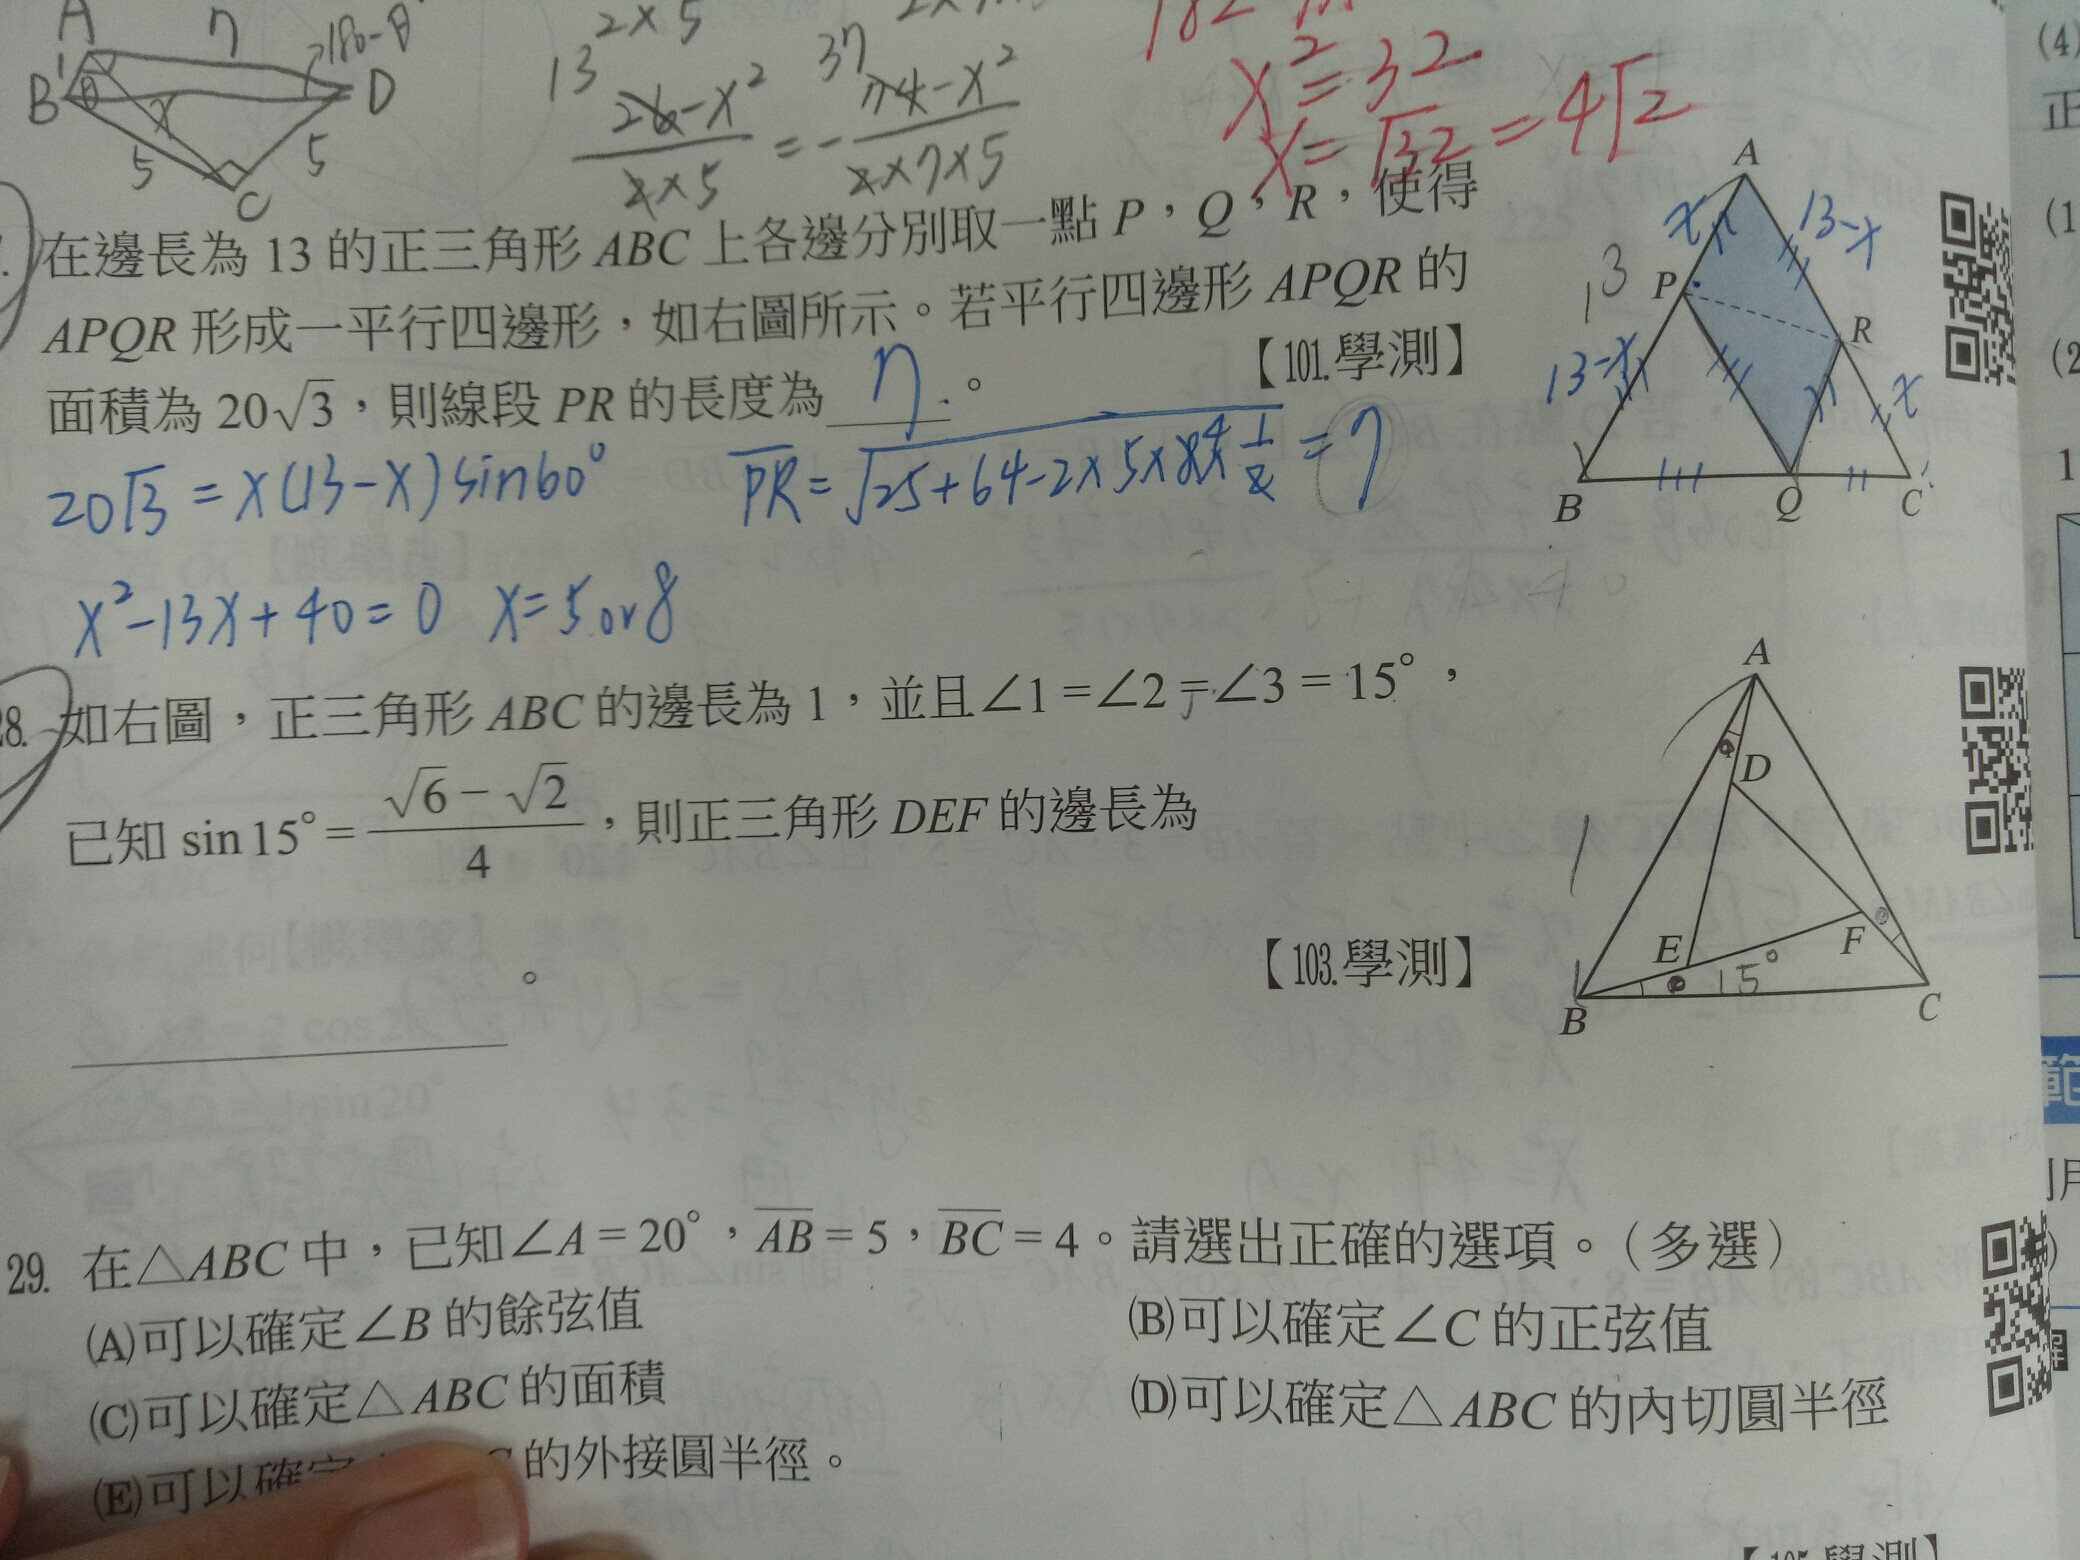 A
7
180-θ
B
1
θ
D
x
5
5
C
2×5
13
26-x²
2×5
= -
37
74-x²
2×7×5
x²=32
x=√32=4√2
在邊長為 13 的正三角形 ABC 上各邊分別取一點 P,Q,R,使得
APQR 形成一平行四邊形,如右圖所示。若平行四邊形 APQR 的
面積為 20√3,則線段 PR 的長度為 7 。
【101.學測】
20√3 = x(13-x) sin60°
PR = √25+64-2×5×8×1/2 = 7
x²-13x+40=0 x=5 or 8
A
x
13-x
13
P
R
13-x
x
B
Q
C
28. 如右圖,正三角形 ABC 的邊長為 1,並且∠1=∠2=∠3=15°,
已知 sin15°=(√6-√2)/4,則正三角形 DEF 的邊長為
。
【103.學測】
A
D
1
E
F
15°
B
C
29. 在△ABC 中,已知∠A=20°,AB=5,BC=4。請選出正確的選項。(多選)
(A)可以確定∠B 的餘弦值
(B)可以確定∠C 的正弦值
(C)可以確定△ABC 的面積
(D)可以確定△ABC 的內切圓半徑
(E)可以確定 的外接圓半徑。
學測】
(4)
正
(1
(2
1
範